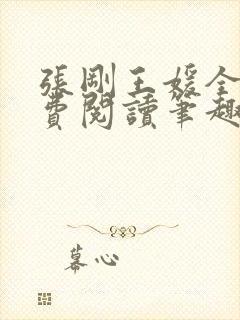 張剛王媛全
費閱讀筆趣
幕心